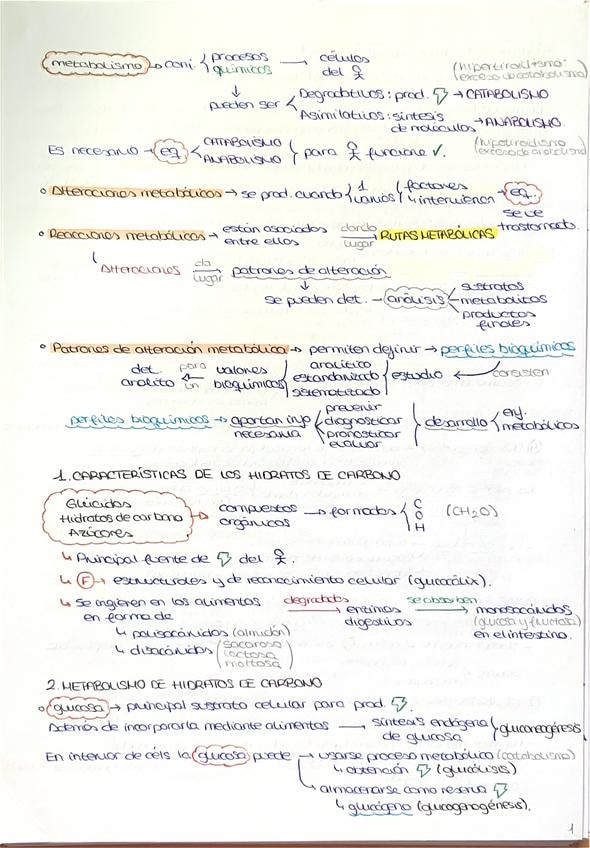 metabolismo → conj. { procesos químicos → células del
(hipertiroidismo: exceso de catabolismo)
↓
pueden ser < Degradativos: prod. → CATABOLISMO
Asimilativos: síntesis de moléculas → ANABOLISMO
(hipotiroidismo) (exceso de anabolismo)
Es necesario → eq < CATABOLISMO ANABOLISMO } para funcione ✓.
° Alteraciones metabólicas → se prod. cuando { 1 varios { factores intervienen → eq. se ve trastornado.
° Reacciones metabólicas → están asociadas entre ellos dando lugar RUTAS METABÓLICAS
Alteraciones da lugar patrones de alteración
↓
se pueden det. → análisis < sustratos metabolitos productos finales
° Patrones de alteración metabólica → permiten definir → perfiles bioquímicos
consisten
estudio { analítico estandarizado sistematizado } valores bioquímicos para un det. analito
perfiles bioquímicos → aportan info necesaria { prevenir diagnosticar pronosticar evaluar } desarrollo { enf. metabólicas
1. CARACTERÍSTICAS DE LOS HIDRATOS DE CARBONO
Glúcidos
Hidratos de carbono
Azúcares
→ compuestos orgánicos → formados { C O H (CH2O)
↳ Principal fuente de del .
↳ F → estructurales y de reconocimiento celular (glucocálix).
↳ Se ingieren en los alimentos en forma de degradados → enzimas digestivos se absorben → monosacáridos (glucosa y fructosa) en el intestino.
↳ polisacáridos (almidón)
↳ disacáridos (sacarosa lactosa maltosa)
2. METABOLISMO DE HIDRATOS DE CARBONO
° glucosa → principal sustrato celular para prod. .
Además de incorporarla mediante alimentos → síntesis endógena de glucosa } gluconeogénesis
En interior de céls la glucosa puede → usarse proceso metabólico (catabolismo)
↳ obtención (glucólisis)
→ almacenarse como reserva
↳ glucógeno (glucogenogénesis).
1